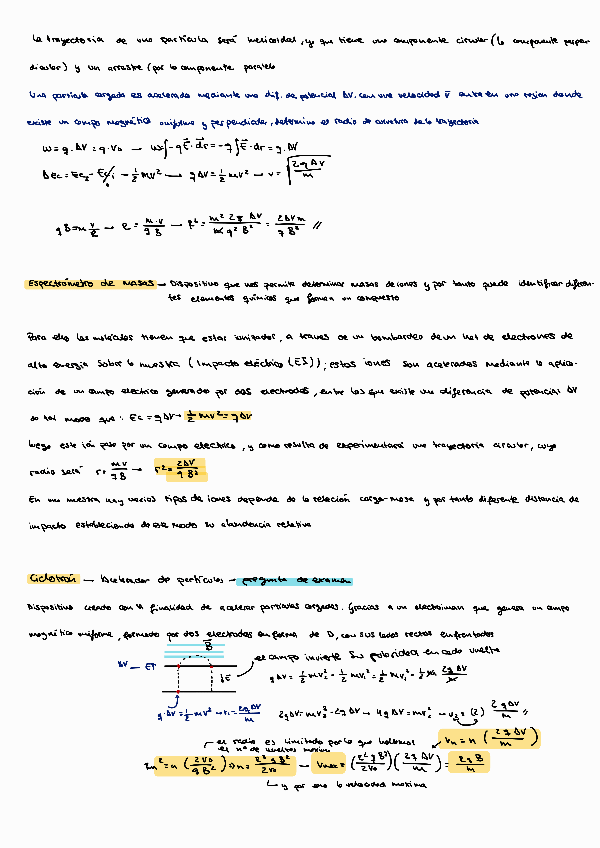 La trayectoria de una partícula será helicoidal, ya que tiene una componente circular (la componente perpen-
dicular) y un arrastre (por la componente paralela
Una partícula cargada es acelerada mediante una dif. de potencial ΔV. con una velocidad v entra en una region donde
existe un campo magnético uniforme y perpendicular, determina el radio de curvatura de la trayectoria
W = q · ΔV = q · V₀ → W = ∫ -q E · dr = -q ∫ E · dr = q · ΔV
ΔEc = Ec₂ - Ec₁ = 1/2 mv² → qΔV = 1/2 mv² → v = √(2qΔV/m)
qB = m v/R → R = m·v/qB → R² = m² 2q ΔV / m q² B² = 2ΔVm / qB² //
Espectrómetro de masas → Dispositivo que nos permite determinar masas de iones y por tanto puede identificar diferen-
tes elementos químicos que forman un compuesto
Para ello las moléculas tienen que estar ionizadas, a traves de un bombardeo de un haz de electrones de
alta energia sobre la muestra (Impacto eléctrico (EI)); estos iones son acelerados mediante la aplica-
ción de un campo electrico generado por dos electrodos, entre los que existe una diferencia de potencial ΔV
de tal modo que: Ec = qΔV → 1/2 mv² = qΔV
luego este ión pasa por un campo electrico, y como resulta de experimentará una trayectoria circular, cuyo
radio será r = mv/qB → r² = 2ΔV/qB²
En una muestra hay varios tipos de iones depende de la relación carga-masa y por tanto diferente distancia de
impacto estableciendo de este modo su abundancia relativa
Ciclotrón → Acelerador de partículas → pregunta de examen
Dispositivo creado con la finalidad de acelerar partículas cargadas. Gracias a un electroiman que genera un campo
magnético uniforme, formado por dos electrodos en forma de D, con sus lados rectos enfrentados
B
ΔV — E
↓E
el campo invierte su polaridad en cada vuelta
qΔV = 1/2 mv₂² - 1/2 mv₁² = 1/2 mv₂² - 1/2 m 2qΔV/m
q·ΔV = 1/2 mv² → v₁ = 2qΔV/m
2qΔV = mv₂² - 2qΔV → 4qΔV = mv₂² → v₂ = (2) 2qΔV/m //
el radio es limitado por lo que
el nº de vueltas maximo
vₙ = n (2qΔV/m)
rₙ² = n (2V₀/qB²) ⇒ n = r² qB²/2V₀ → Vmax = (r² qB²/2V₀)(2qΔV/m) = rqB/m
↳ y por eso la velocidad maxima